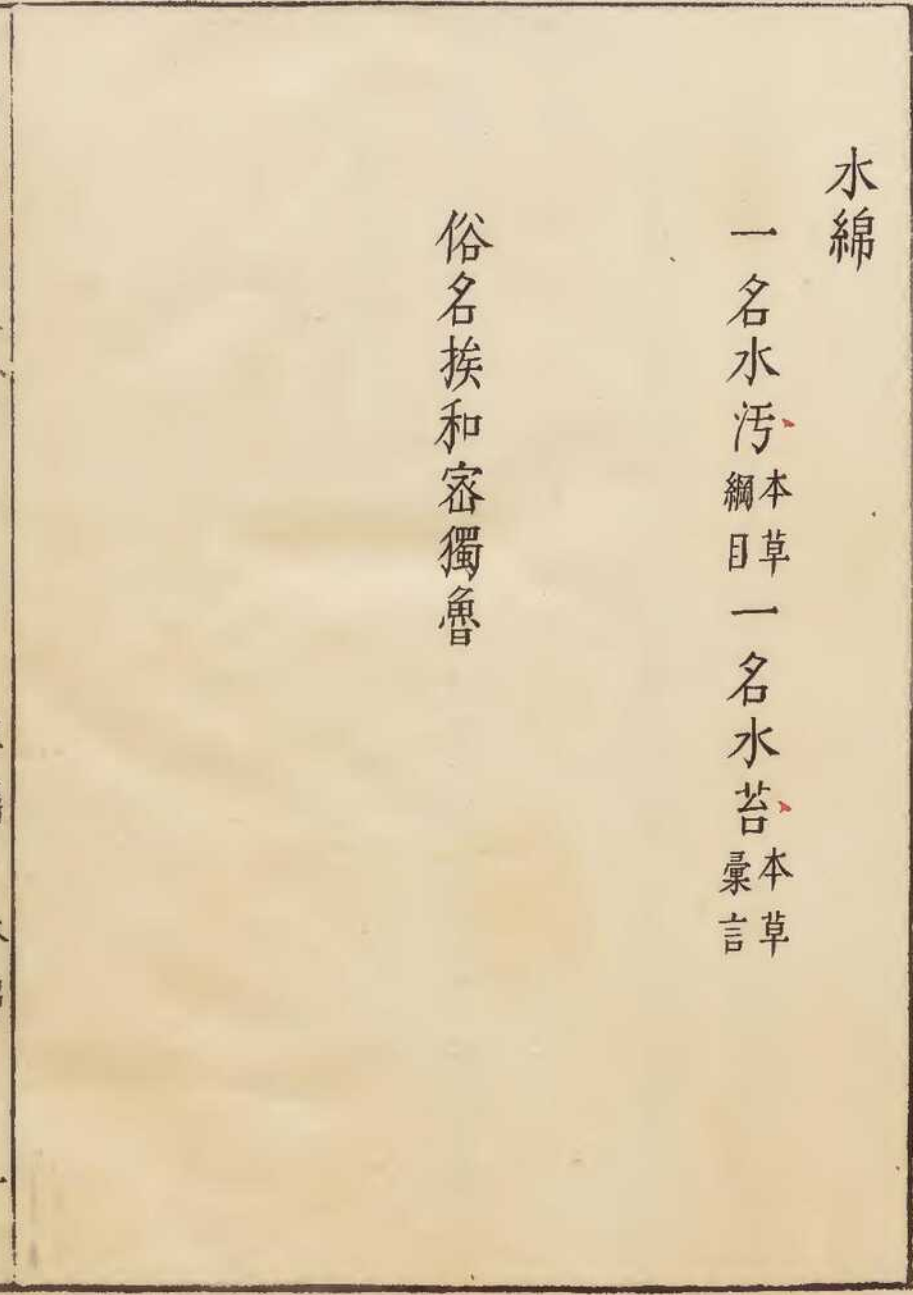 水綿
一名水汚本草綱目一名水苔本草彙言
俗名挨和宻獨魯